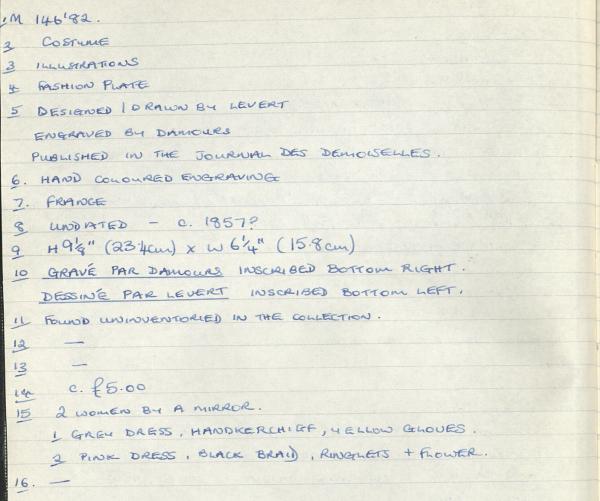 1 M 146'82.
2 COSTUME
3 ILLUSTRATIONS
4 FASHION PLATE
5 DESIGNED / DRAWN BY LEVERT
ENGRAVED BY DAMOURS
PUBLISHED IN THE JOURNAL DES DEMOISELLES.
6. HAND COLOURED ENGRAVING
7. FRANCE
8 UNDATED — c. 1857?
9 H 9 1/8" (23.4cm) x W 6 1/4" (15.8cm)
10 GRAVÉ PAR DAMOURS INSCRIBED BOTTOM RIGHT.
DESSINÉ PAR LEVERT INSCRIBED BOTTOM LEFT.
11 FOUND UNINVENTORIED IN THE COLLECTION.
12 —
13 —
14 c. £5.00
15 2 WOMEN BY A MIRROR.
1 GREY DRESS, HANDKERCHIEF, YELLOW GLOVES.
2 PINK DRESS, BLACK BRAID, RINGLETS + FLOWER.
16. —